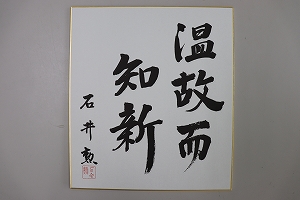 温故而
知新
石井勲